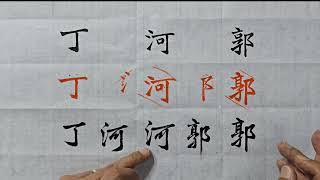 丁 河 郭
丁 氵 河 阝 郭
丁 河 河 郭 郭